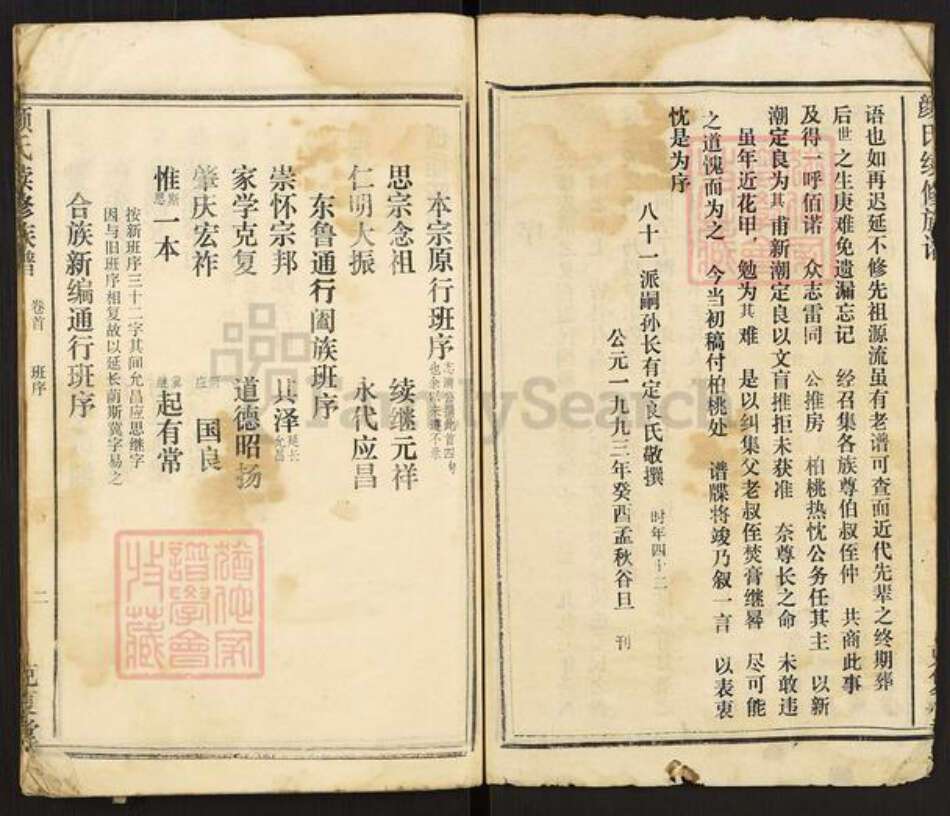 颜氏续修族谱
语也如再迟延不修先祖源流虽有老谱可查面近代先辈之终期葬
后世之生庚难免遗漏忘记 经召集各族尊伯叔侄仲 共商此事
及得一呼佰诺 众志雷同 公推房 柏桃热忱公务任其主 以新
潮定良为其甫新潮定良以文盲推拒未获准 奈尊长之命 未敢违
虽年近花甲 勉为其难 是以纠集父老叔侄焚膏继晷 尽可能
之道愧而为之 今当初稿付柏桃处 谱牒将竣乃叙一言 以表衷
忱是为序
八十一派嗣孙长有定良氏敬撰 时年四十二
公元一九九三年癸酉孟秋谷旦 刊
本宗原行班序
思宗念祖 续继元祥
仁明大振 永代应昌
东鲁通行阖族班序
崇怀宗邦 其泽延长允昌
家学克复 道德昭扬
肇庆宏祚 应 国良
惟斯思一本 冀继起有常
按新班序三十二字其间允昌应思继字
因与旧班序相复故以延长荫斯冀字易之
合族新编通行班序
颜氏续修族谱 卷首 班序 二 克复堂
FamilySearch